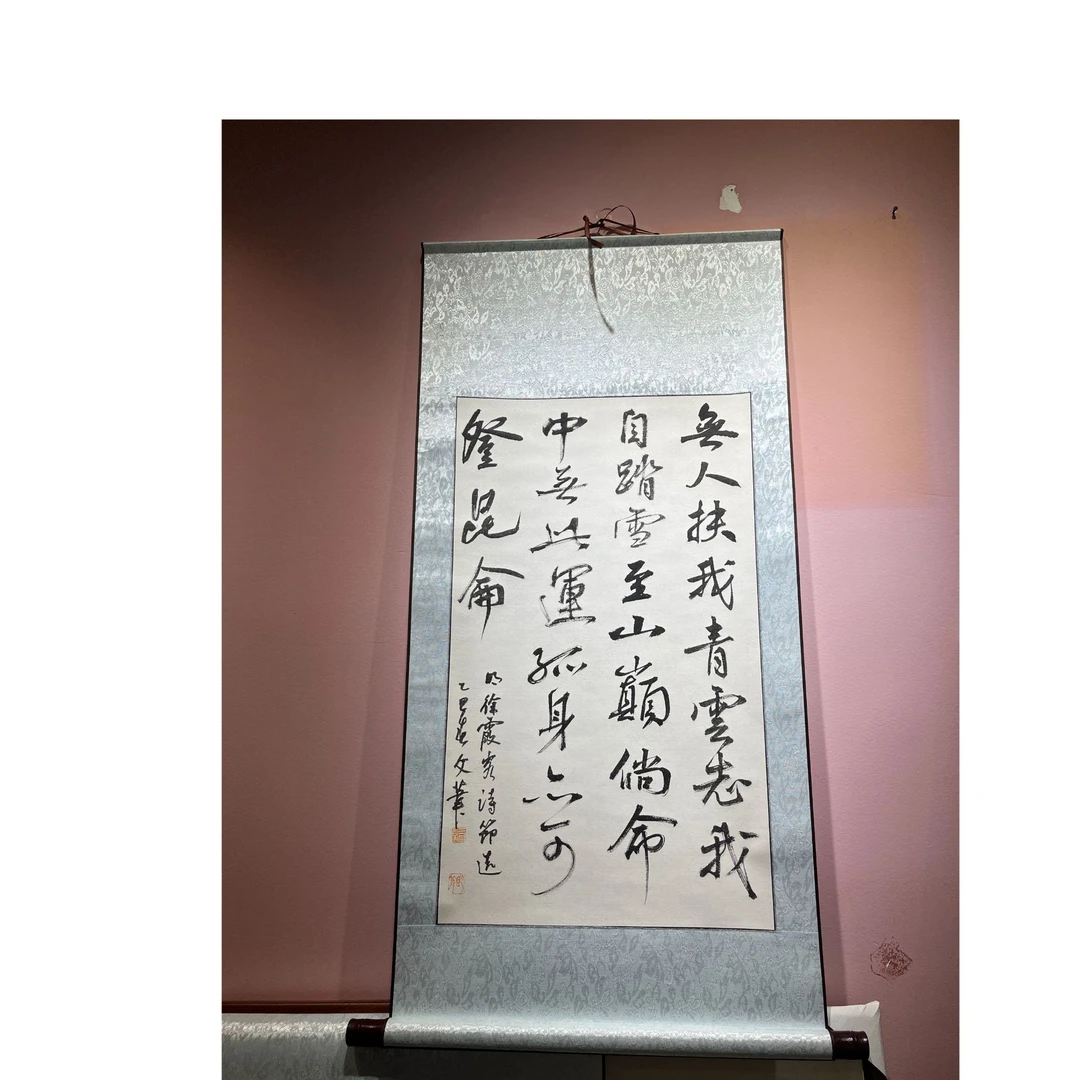 無人扶我青雲志我
自踏雪至山巔倘命
中無此運孤身亦可
登昆侖
明徐霞客詩節選
乙巳春文華